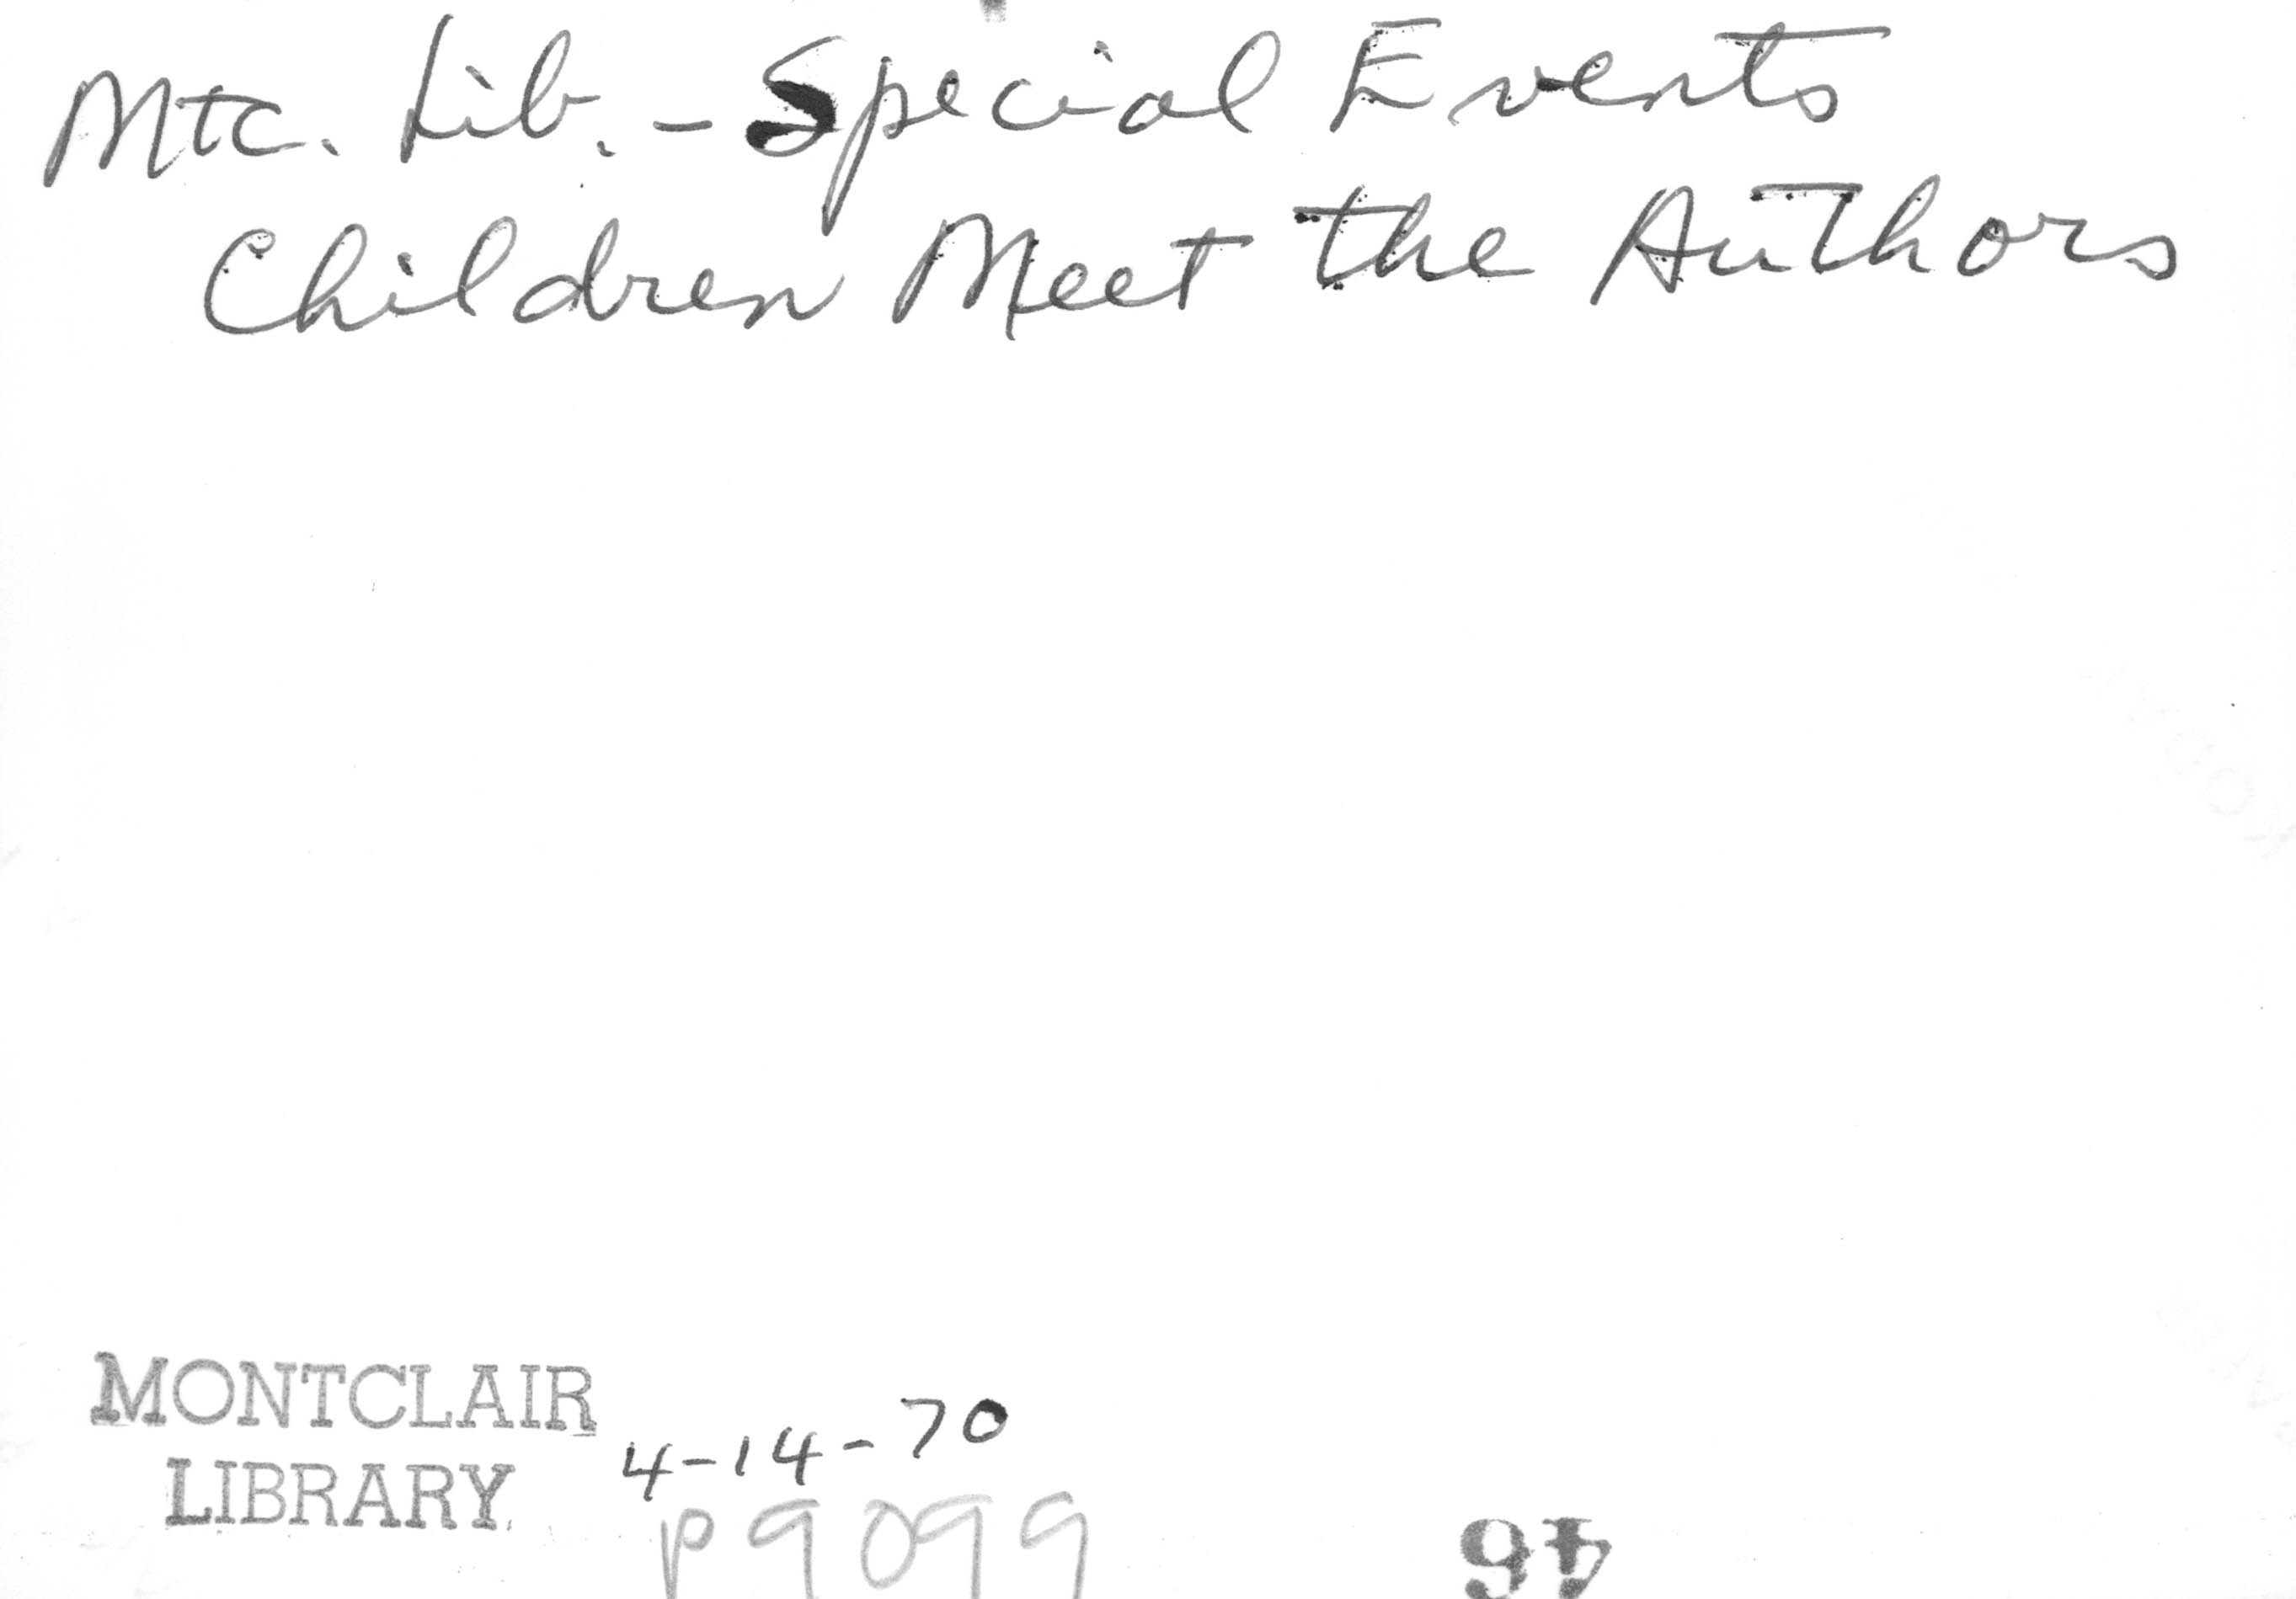 Mtc. Lib. - Special Events
Children Meet the Authors
MONTCLAIR
LIBRARY
4-14-70
P9099
46